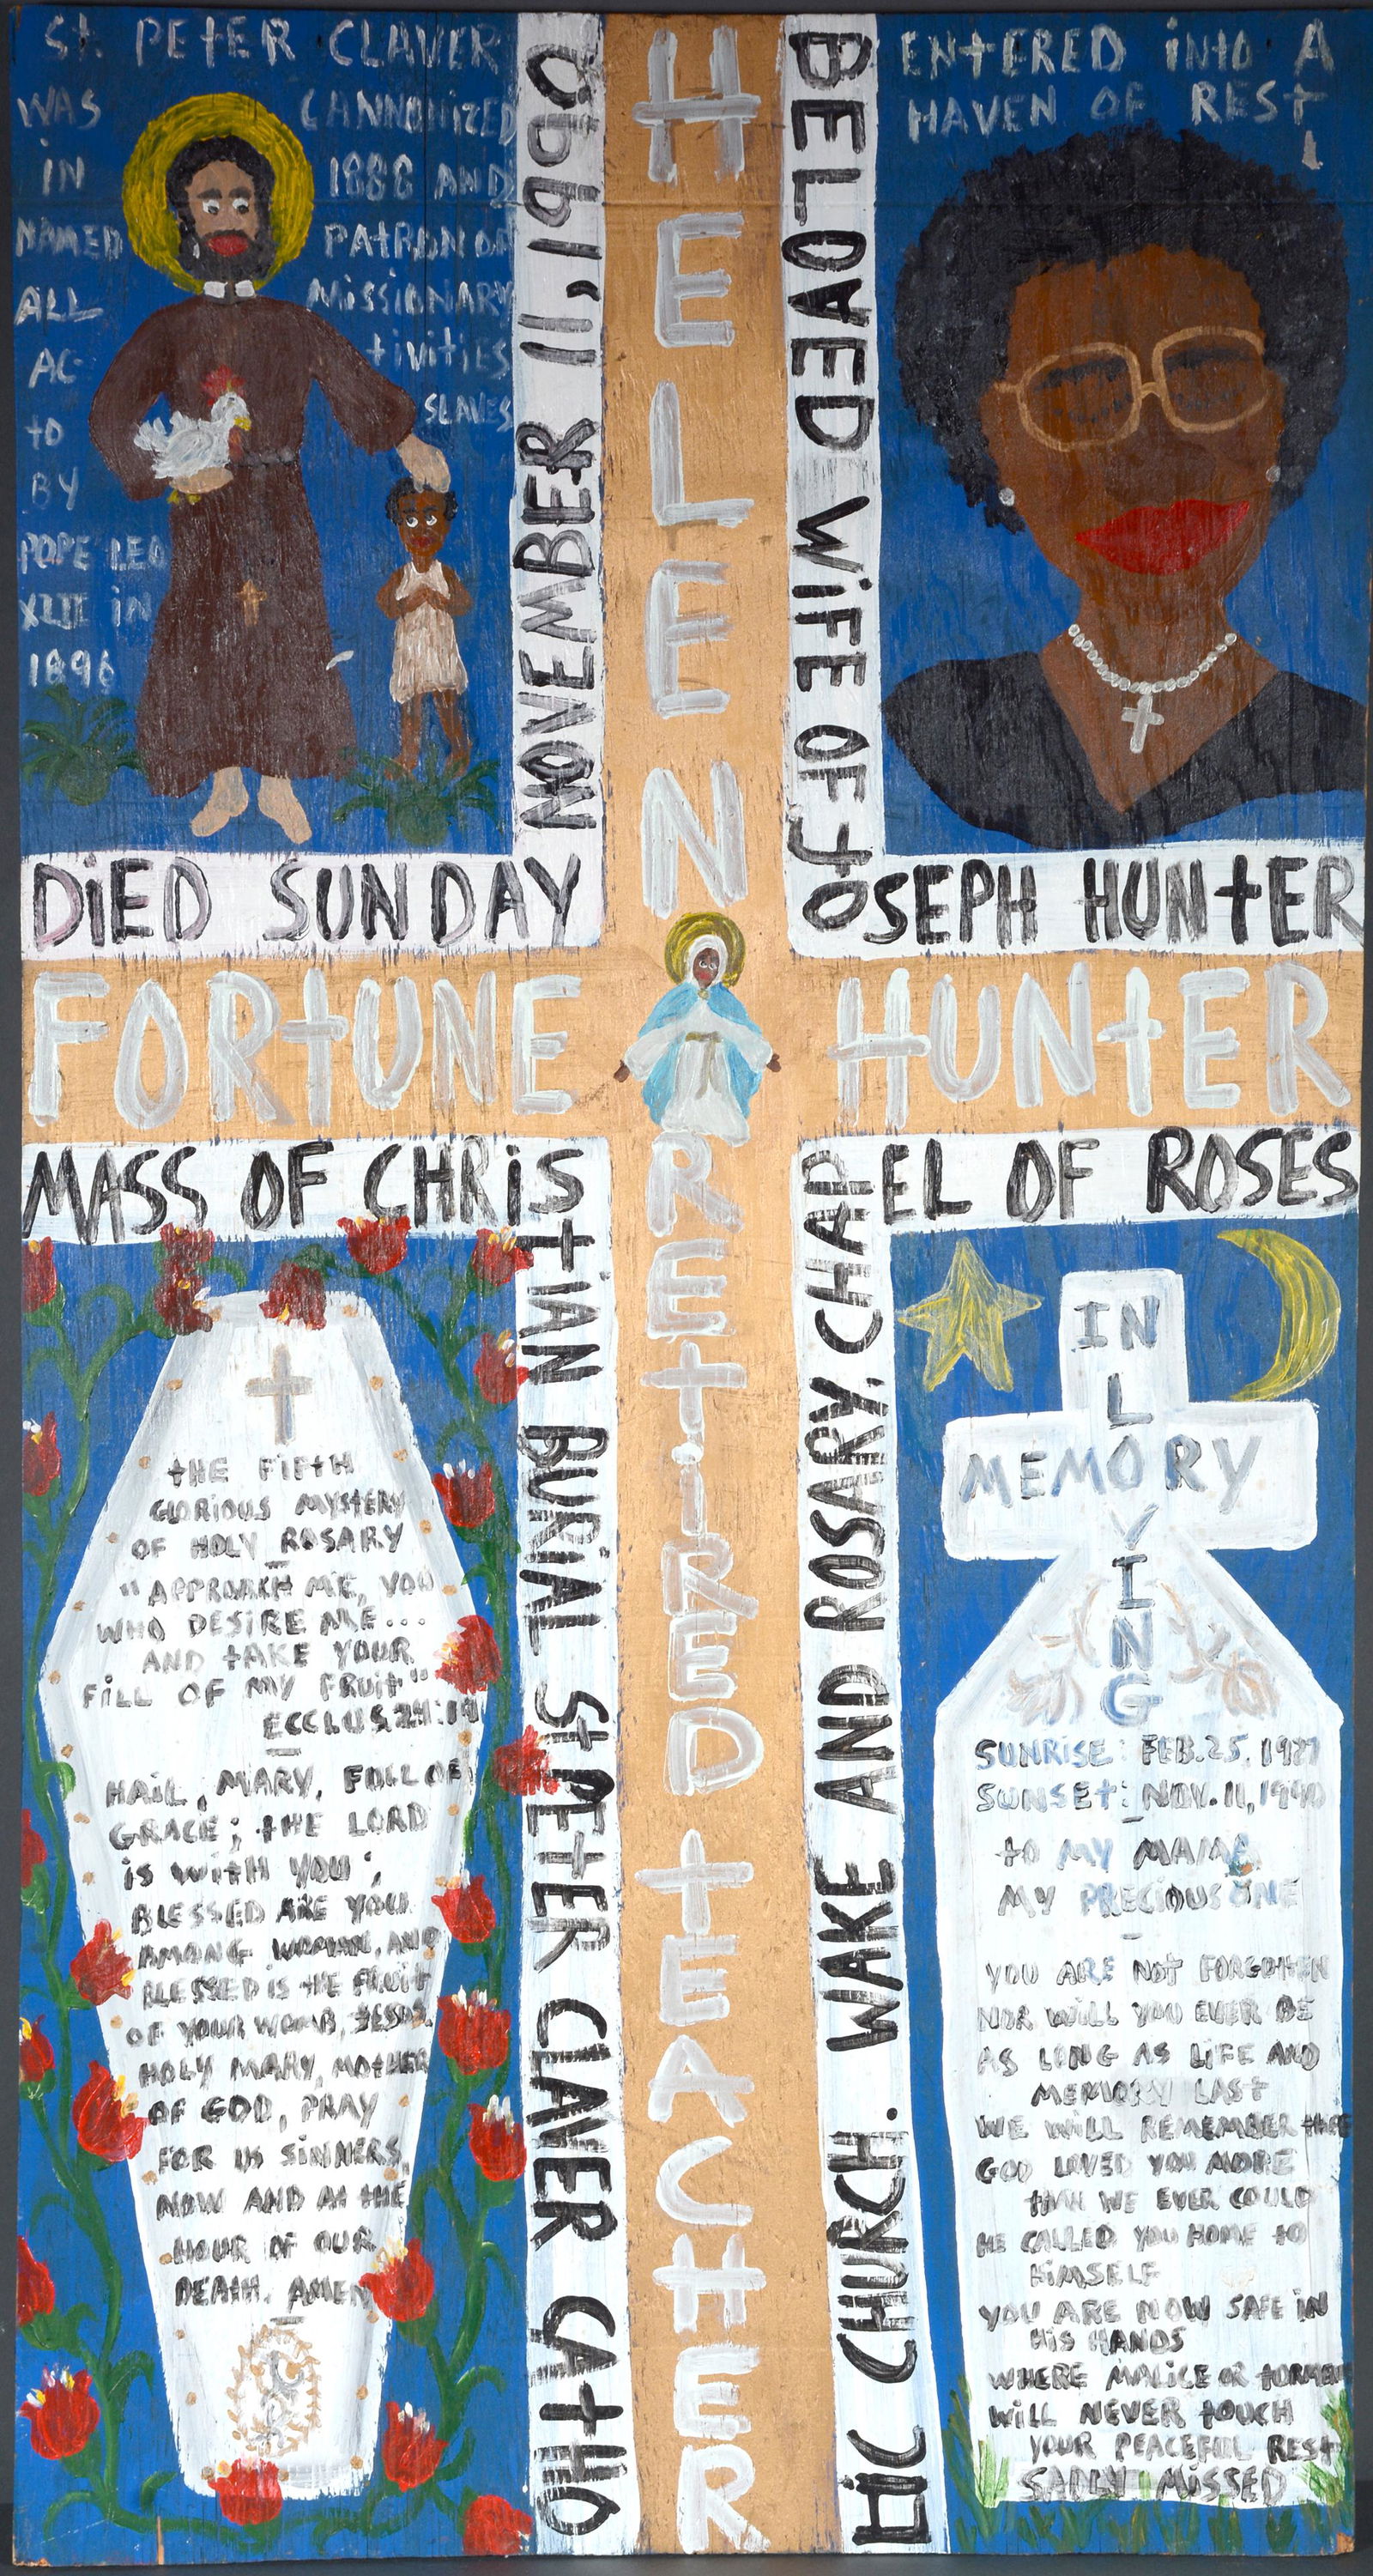 St. PEtER CLAVER
WAS CANNONIZED
IN 1888 AND
NAMED PAtRON OF
ALL MISSIONARY
AC- tIVItIES
tO SLAVES
BY
POPE LEO
XIII iN
1896
NOVEMBER 11, 1990
DiED SUNDAY
HELEN
BELOVED WiFE OF JOSEPH HUNtER
ENtERED iNtO A
HAVEN OF RESt
FORtUNE HUNtER
REtiRED tEACHER
MASS OF CHRiStiAN BURiAL St. PEtER CLAVER CAtHO
LIC CHURCH. WAKE AND ROSARY, CHAPEL OF ROSES
tHE FIFtH
GLORIOUS MYStERY
OF HOLY ROSARY
"APPROACH ME, YOU
WHO DESIRE ME...
AND tAKE YOUR
FiLL OF MY FRUit"
ECCLUS. 24:19
HAiL, MARY, FULL OF
GRACE; tHE LORD
iS WitH YOU;
BLESSED ARE YOU
AMONG WOMAN, AND
BLESSED IS tHE FRUit
OF YOUR WOMB, JESUS.
HOLY MARY, MOtHER
OF GOD, PRAY
FOR US SiNNERS,
NOW AND At tHE
HOUR OF OUR
DEAtH. AMEN
IN
LOVING
MEMORY
SUNRISE: FEB. 25,
SUNSEt: NOV. 11, 1990
tO MY MAMA,
MY PRECIOUS ONE
YOU ARE NOt FORGOttEN
NOR WiLL YOU EVER BE
AS LONG AS LiFE AND
MEMORY LASt
WE WiLL REMEMBER tHEE
GOD LOVED YOU MORE
tHAN WE EVER COULD
HE CALLED YOU HOME tO
HiMSELF
YOU ARE NOW SAFE iN
HiS HANDS
WHERE MALiCE OR tORMENt
WiLL NEVER tOUCH
YOUR PEACEFUL RESt
SADLY MiSSED